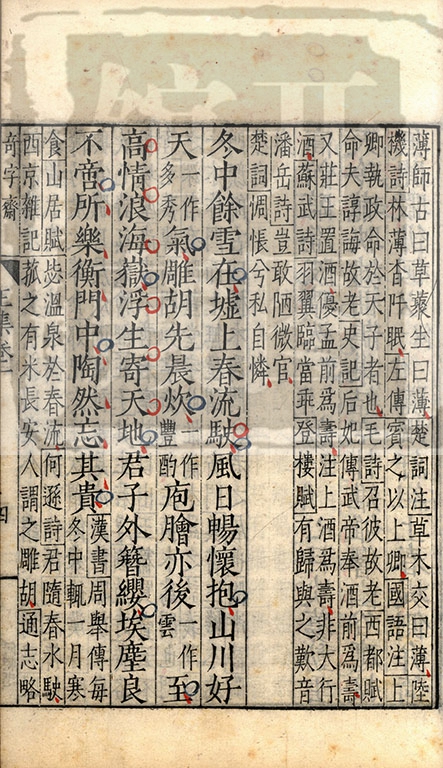 薄師古曰草藂生曰薄楚詞注草木交曰薄陸
機詩林薄杳阡眠左傳賓之以上卿國語注上
卿執政命於天子者也毛詩召彼故老西都賦
命夫諄誨故老史記后妃傳武帝奉酒前爲壽
又莊王置酒優孟前爲壽注上酒爲壽非大行
酒蘇武詩羽翼臨當乖登樓賦有歸與之歎音
潘岳詩豈敢陋微官
楚詞惆悵兮私自憐
冬中餘雪在墟上春流駛風日暢懷抱山川好
天一作多秀氣雕胡先晨炊一作豐酌庖膾亦後一作雲至
高情浪海嶽浮生寄天地君子外簪纓埃塵良
不啻所樂衡門中陶然忘其貴漢書周舉傳每冬中輒一月寒
食山居賦毖溫泉於春流何遜詩君隨春水駛
西京雜記菰之有米長安人謂之雕胡通志略
奇字齋
四